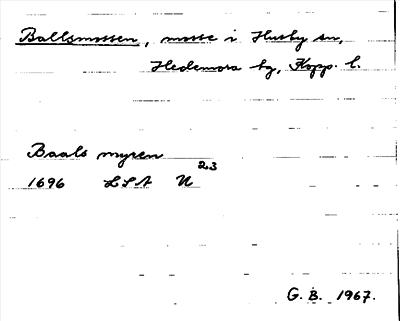 Ballsmossen, mosse i Husby sn,
Hedemora tg, Kopp. l.
Baals myren
1696 LSA U 23
G. B. 1967.